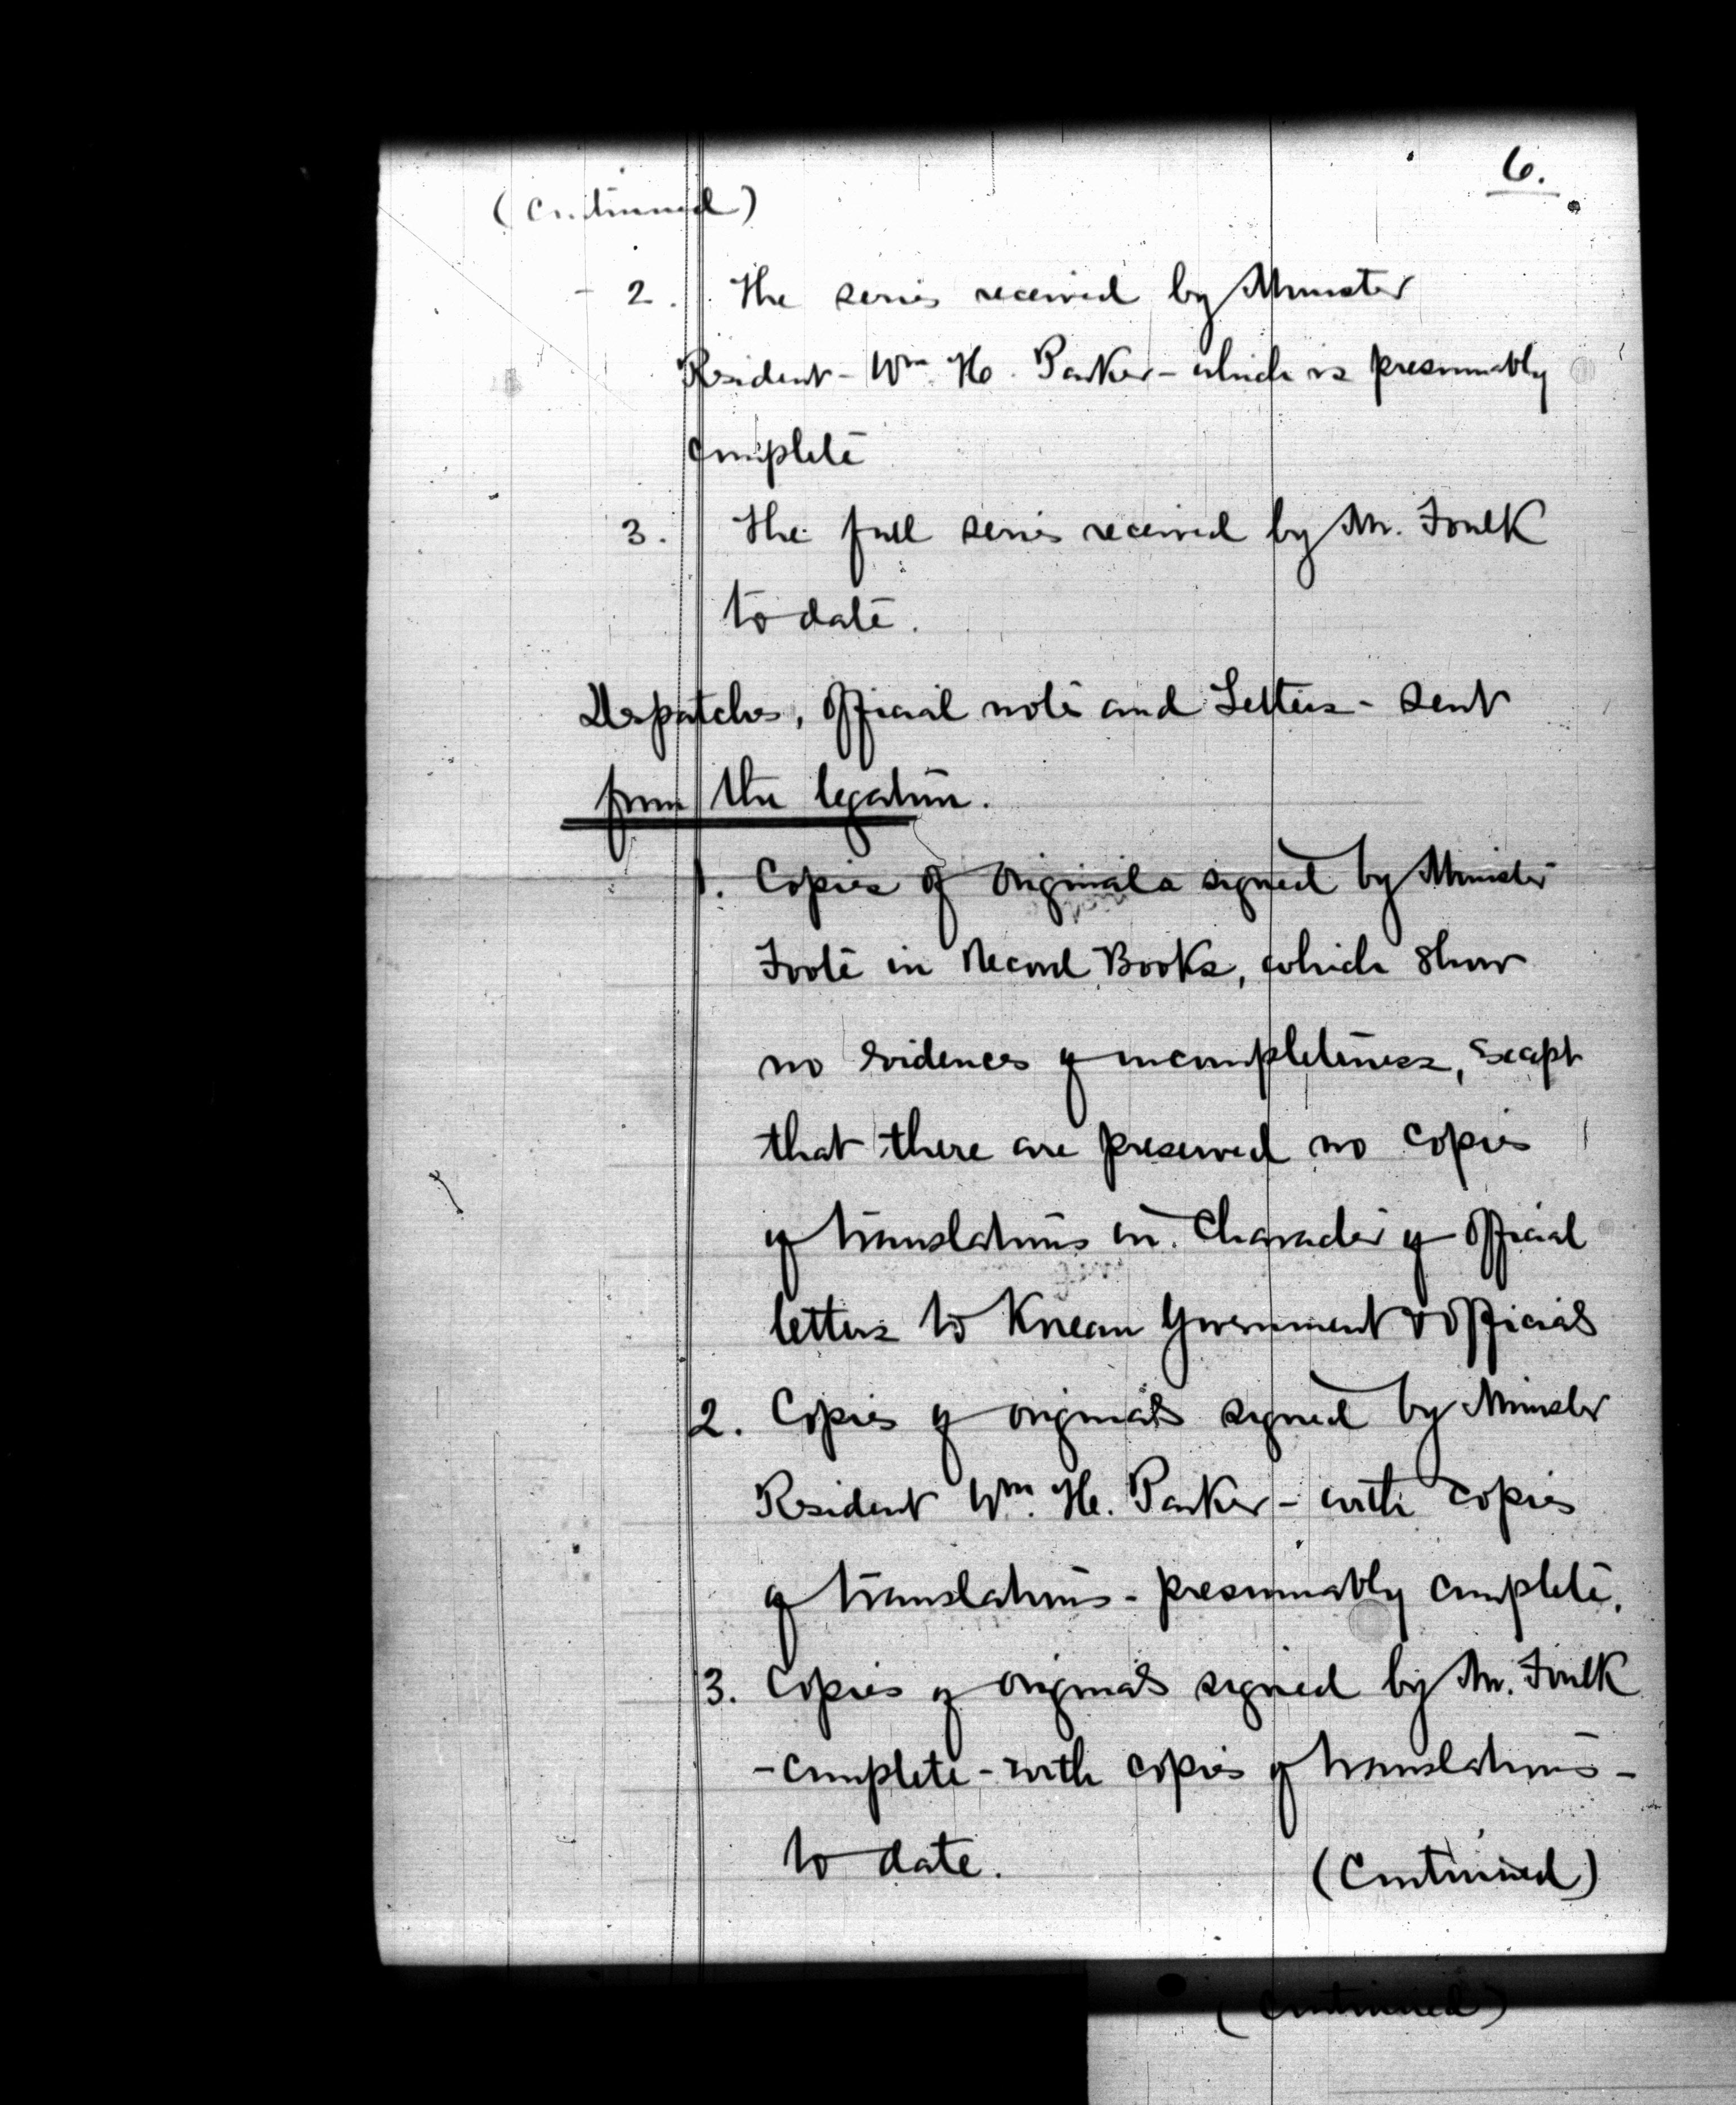 6.
(Continued)
- 2. The series received by Minister
Resident - Wm H. Parker - which is presumably
complete
3. The full series received by Mr. Foulk
to date.
Despatches, official notes and Letters - sent
from the legation.
1. Copies of originals signed by Minister
Foote in Record Books, which show
no evidences of incompleteness, except
that there are preserved no copies
of translations in Character of official
letters to Korean Government & officials
2. Copies of originals signed by Minister
Resident Wm. H. Parker - with copies
of translations - presumably complete.
3. Copies of originals signed by Mr. Foulk
- complete - with copies of translations -
to date.
(Continued)
(Continued)